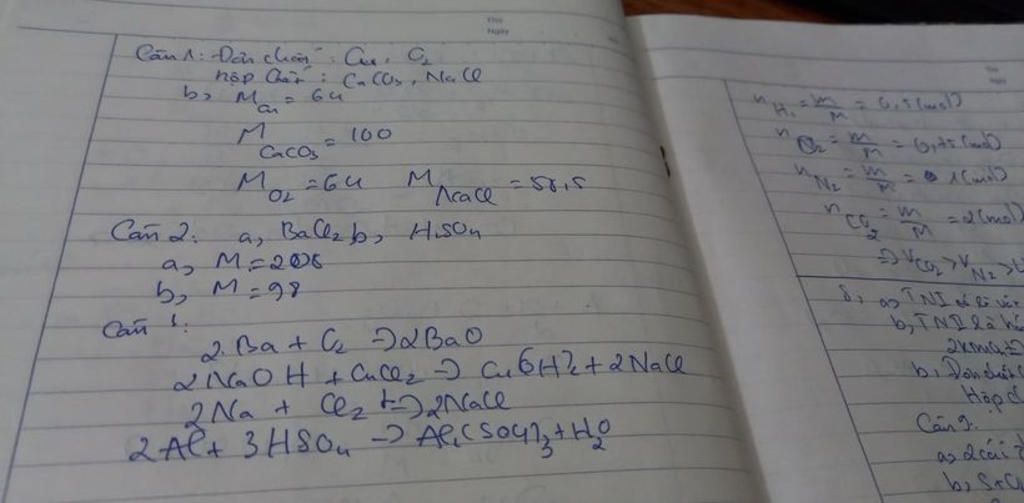 Thứ
Ngày
Câu 1: Đơn chất: Cu, O2
hợp chất: CaCO3, NaCl
b, M Cu = 64
M CaCO3 = 100
M O2 = 64 M NaCl = 58,5
Câu 2: a, BaCl2 b, H2SO4
a, M = 208
b, M = 98
Câu 1:
2Ba + O2 → 2BaO
2NaOH + CuCl2 → Cu(OH)2 + 2NaCl
2Na + Cl2 → 2NaCl
2Al + 3HSO4 → Al2(SO4)3 + H2O
n H2 = m/M = 0,5 (mol)
n O2 = m/M = 0,75 (mol)
n N2 = m/M = 1 (mol)
n CO2 = m/M = 2 (mol)
=> V CO2 > V N2 >
8, a, TN1
b, TN1 là
b, Đơn chất
Hợp
Câu 9:
a, 2
b, S+O